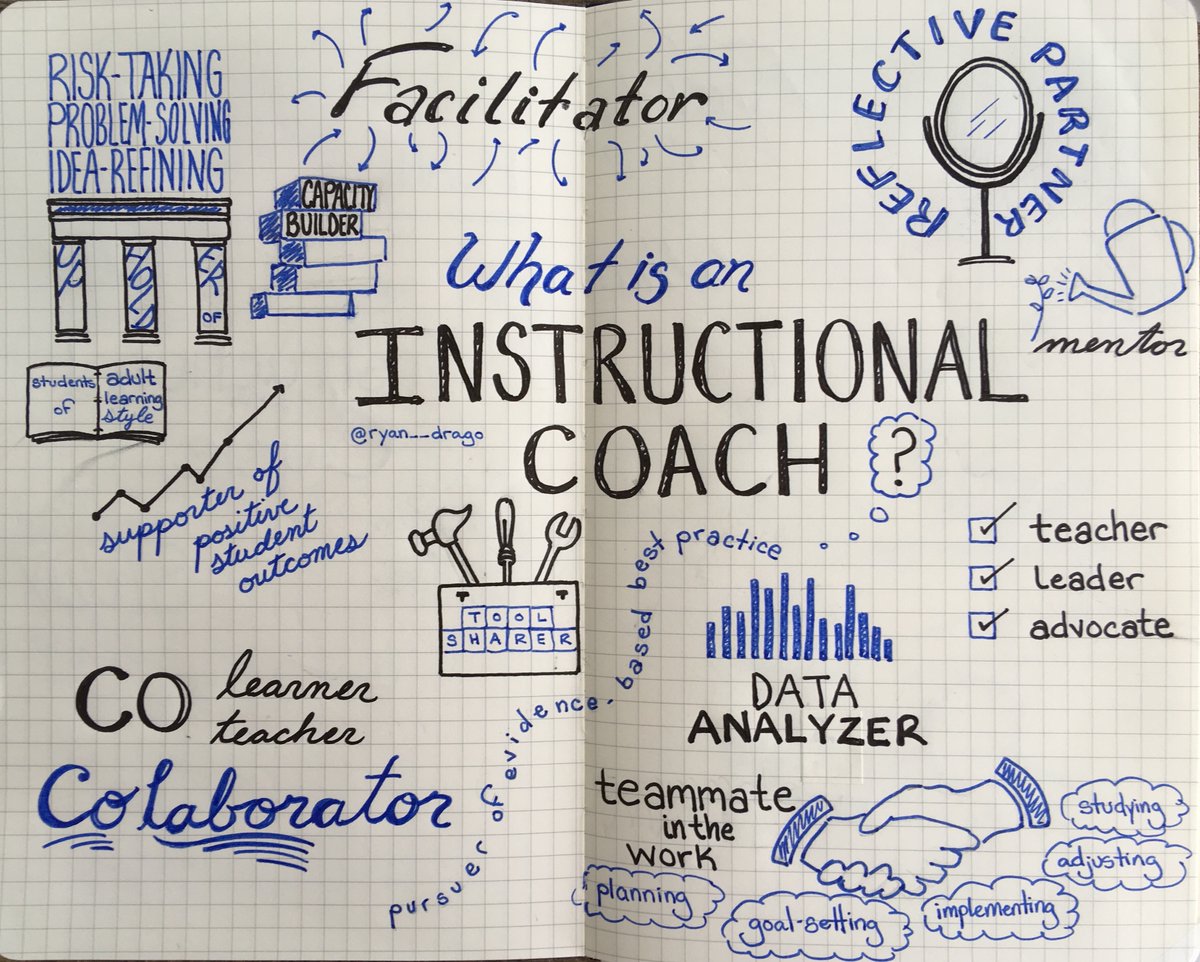 RISK-TAKING
PROBLEM-SOLVING
IDEA-REFINING
UP HOLD ER OF
CAPACITY
BUILDER
Facilitator
REFLECTIVE PARTNER
mentor
What is an
INSTRUCTIONAL
COACH ?
@ryan__drago
students
of
adult
learning
style
supporter of
positive
student
outcomes
TOOL
SHARER
pursuer of evidence-based best practice
teacher
leader
advocate
DATA
ANALYZER
CO learner
teacher
Colaborator
teammate
in the
work
planning
goal-setting
implementing
adjusting
studying